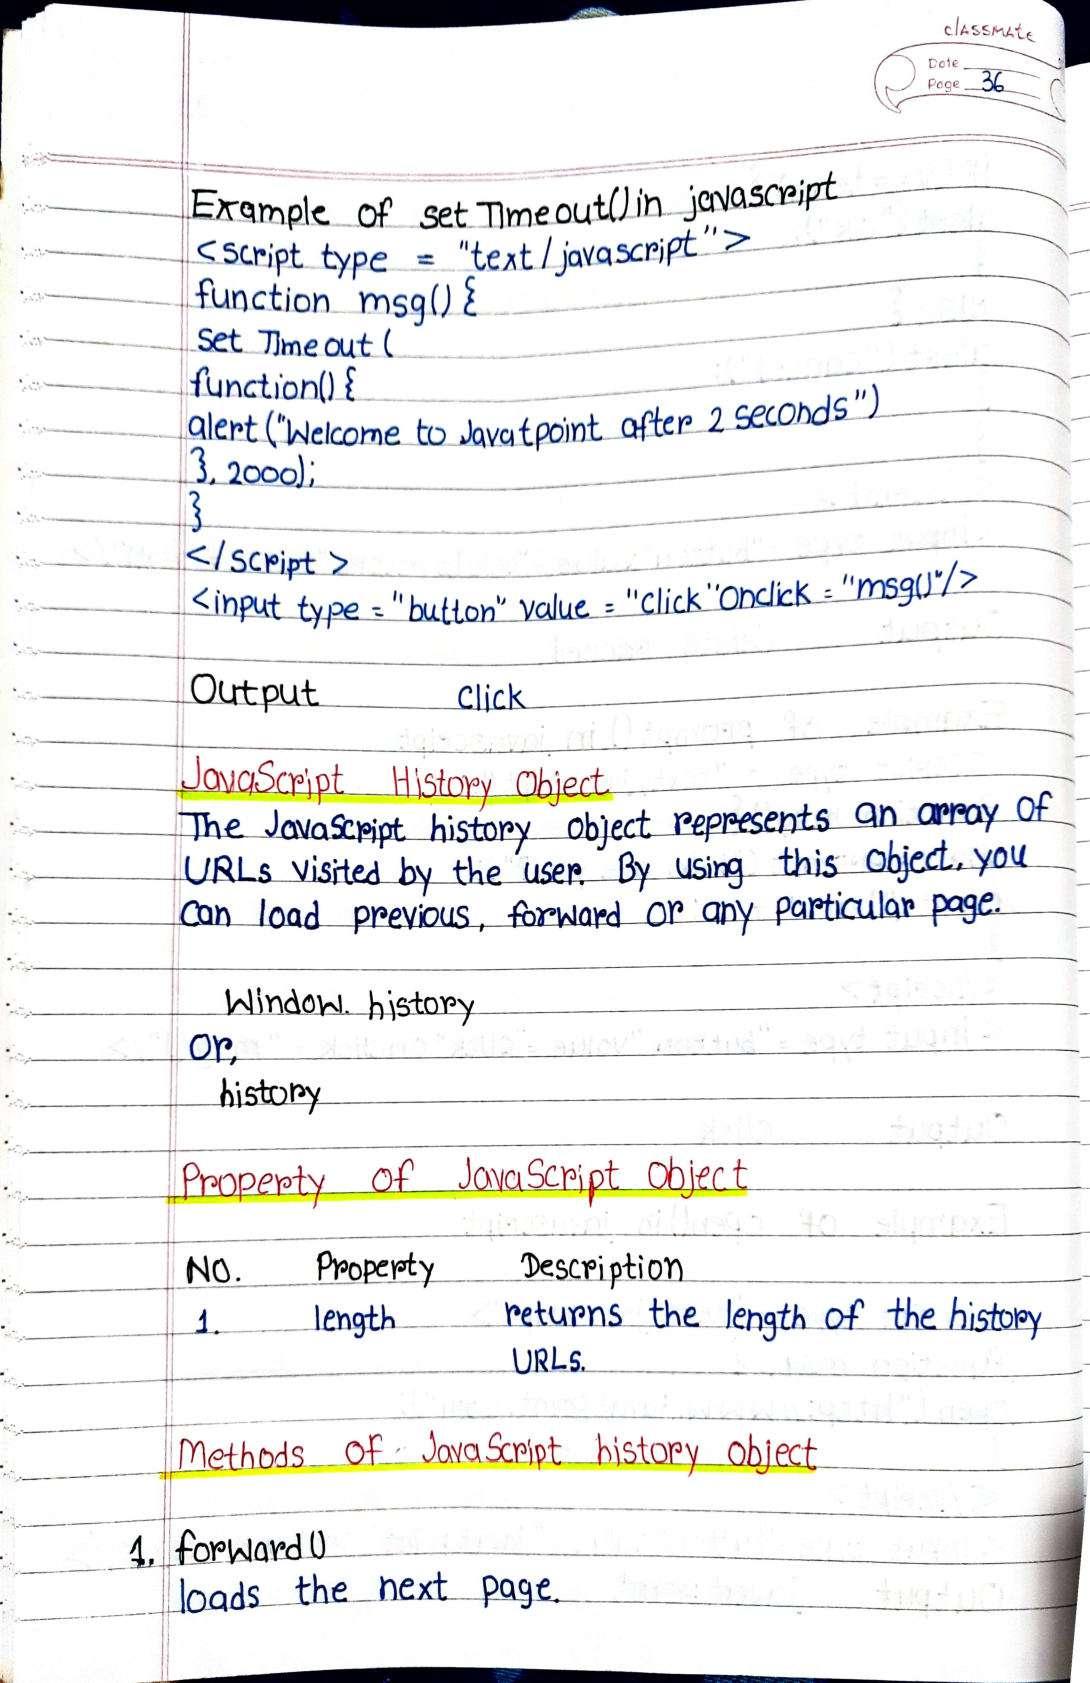 classmate
Date
Page 36
Example of set Timeout() in javascript
<script type = "text/javascript">
function msg() {
set Timeout (
function() {
alert ("Welcome to Javatpoint after 2 seconds")
}, 2000);
}
</script>
<input type = "button" value = "click" Onclick = "msg()"/>
Output click
JavaScript History Object
The JavaScript history object represents an array of
URLs visited by the user. By using this object, you
can load previous, forward or any particular page.
Window. history
Or,
history
Property of JavaScript Object
No. Property Description
1. length returns the length of the history
URLs.
Methods of JavaScript history object
1. forward()
loads the next page.